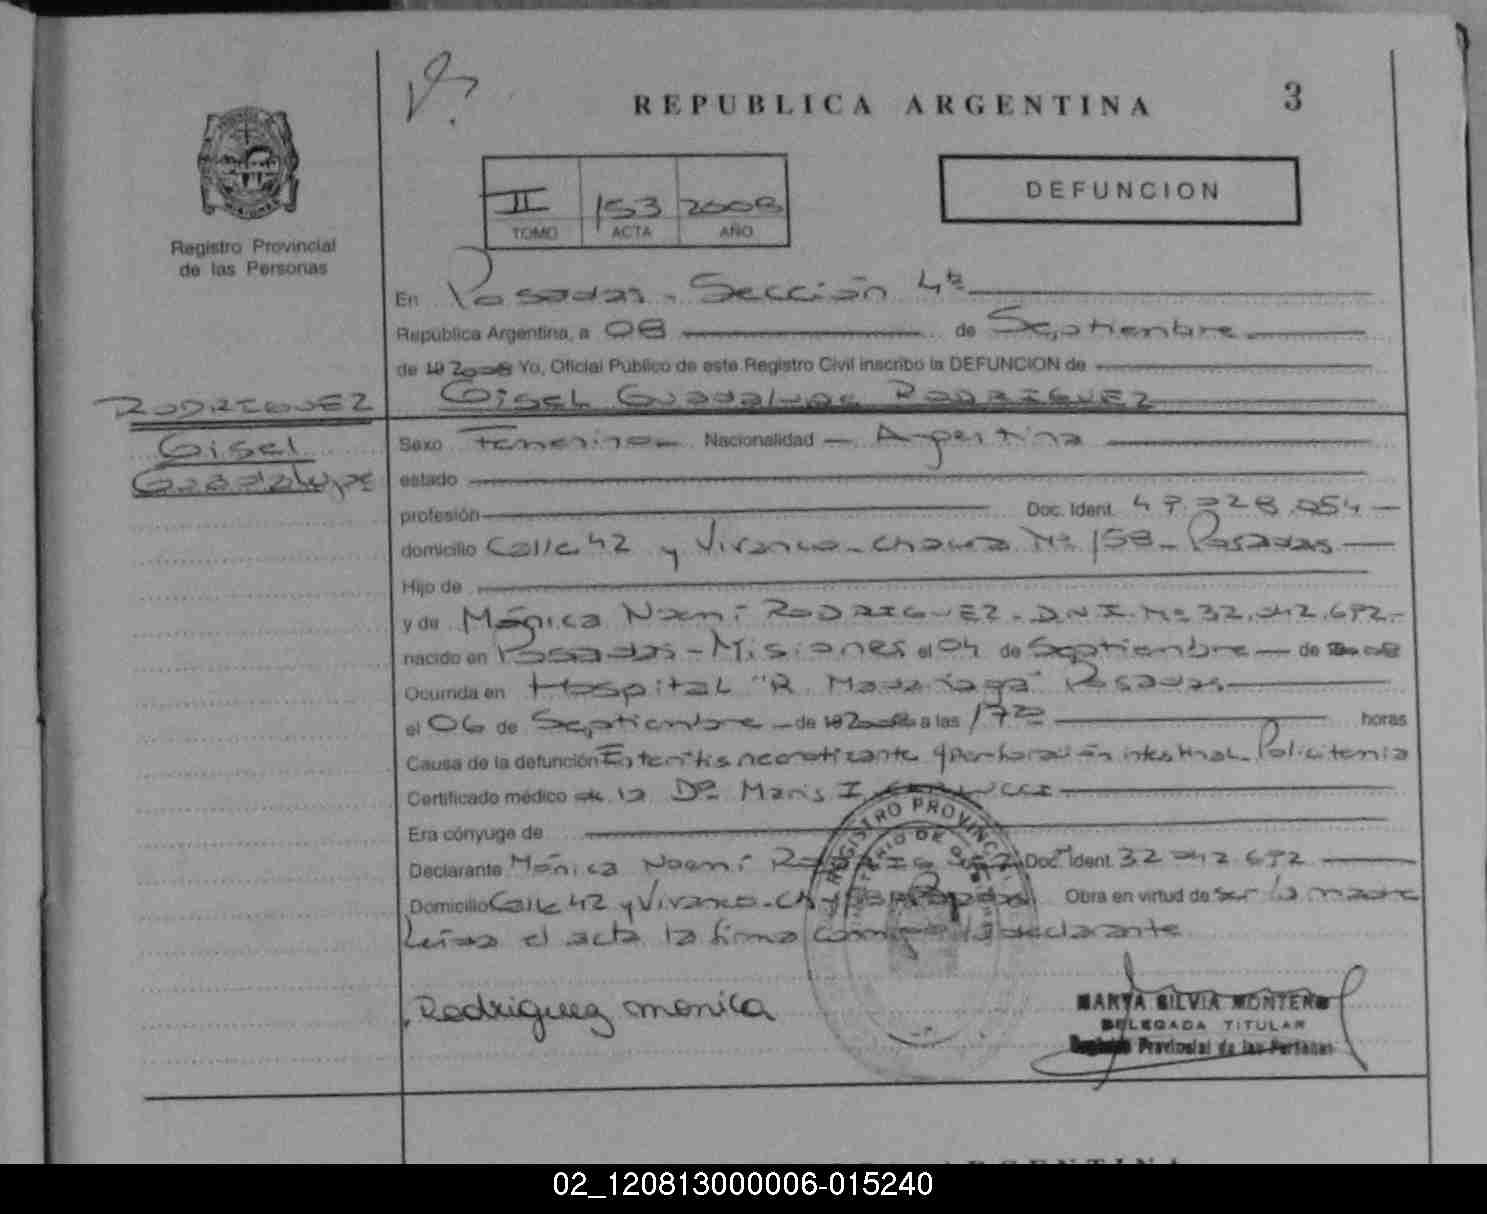 REPUBLICA ARGENTINA
3
II 153 2008
TOMO ACTA AÑO
DEFUNCION
Registro Provincial
de las Personas
En Posadas - Sección 4ta
República Argentina, a 08 de Septiembre
de 19 2008 Yo, Oficial Público de este Registro Civil inscribo la DEFUNCION de
Gisel Guadalupe RODRIGUEZ
RODRIGUEZ
Gisel
Guadalupe
Sexo Femenino Nacionalidad Argentina
estado
profesión Doc. Ident.
domicilio Calle 42 y Vivanco - chacra Nº 158 - Posadas
Hijo de
y de Mónica Noemí RODRIGUEZ - D.N.I. Nº
nacido en Posadas - Misiones el 04 de Septiembre de 2008
Ocurrida en Hospital "R. Madariaga" Posadas
el 06 de Septiembre de 19 2008 a las horas
Causa de la defunción Enteritis necrotizante y perforación intestinal - Policitemia
Certificado médico de la Dra Maris I
Era cónyuge de
Declarante Mónica Noemí RODRIGUEZ Doc. Ident.
Domicilio Calle 42 y Vivanco - Ch 158 Posadas Obra en virtud de ser la madre
Leída el acta la firma conmigo la declarante
REGISTRO PROVINCIAL
Rodriguez monica
MARTA SILVIA MONTERO
DELEGADA TITULAR
Registro Provincial de las Personas
02_120813000006-015240